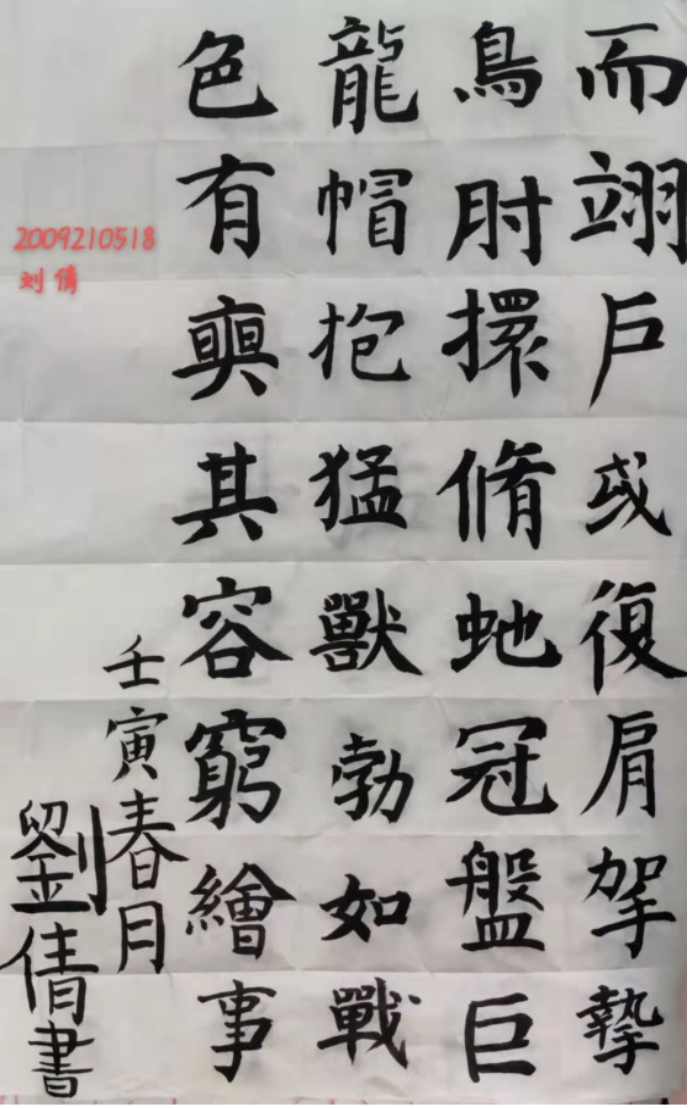 而翊户或復肩拏摯
鳥肘擐脩虵冠盤巨
龍帽抱猛獸勃如戰
色有奭其容窮繪事
壬寅春月
劉倩書
2009210518
刘倩